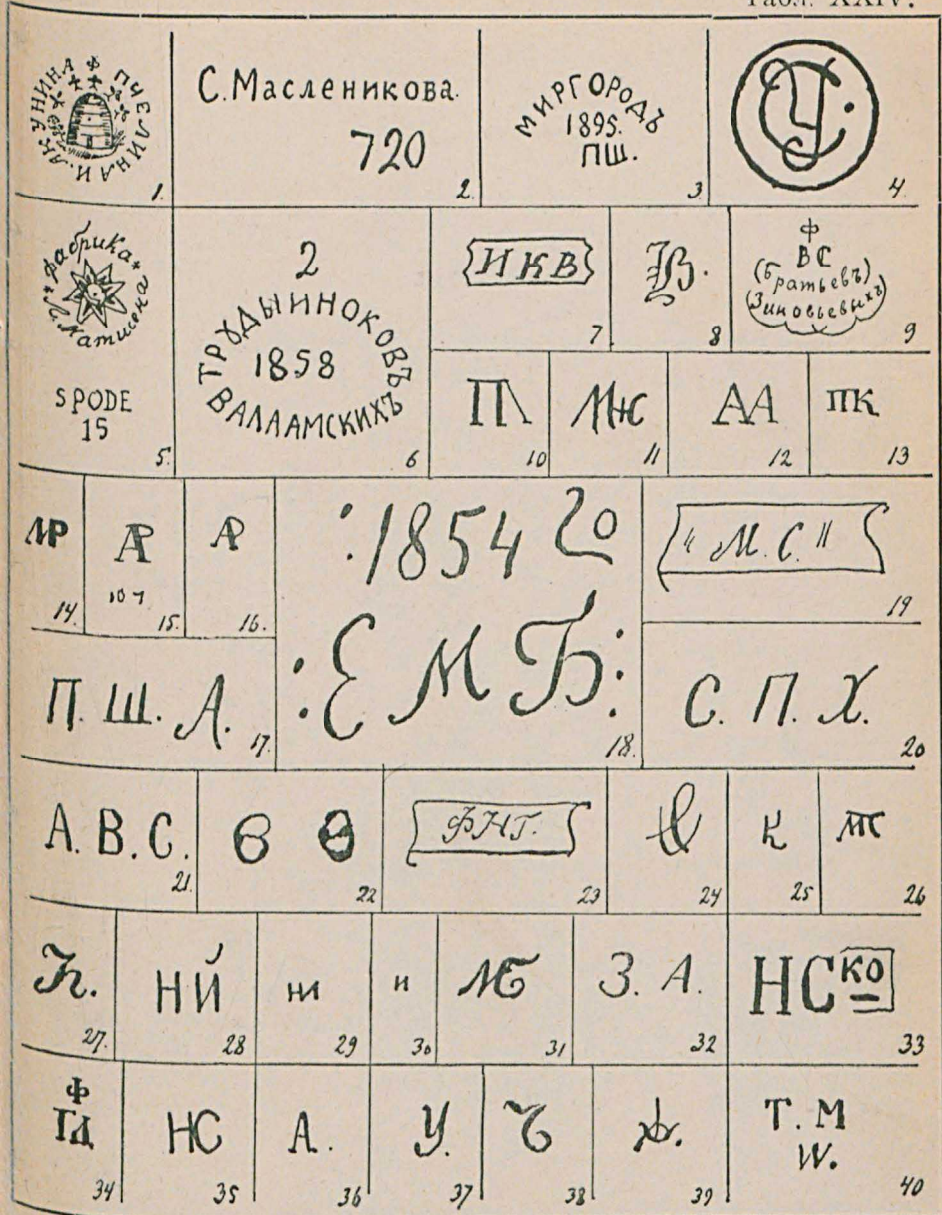 Табл. XXIV.
Ф ПЧЕЛИНА И. ЯКУНИНА
1.
С. Масленикова.
720
2.
МИРГОРОДЪ
1895.
ПШ.
3.
4.
* Фабрика *
Матисена
SPODE
15
5.
2
ТРУДЫ ИНОКОВЪ
1858
ВАЛААМСКИХЪ
6
ИКВ
7
В.
8
Ф
ВС
(Братьевъ)
Зиновьевыхъ
9
П
10
МК
11
АА
12
ПК
13
МР
14.
АР
107
15.
АР
16.
:1854 20
:Е М Б:
18.
"М. С."
19
П. Ш. А.
17.
С. П. Х.
20
А. В. С.
21.
Ѳ Ѳ
22
ФНГ.
23
24
К
25
26
К.
27.
НЙ
28
29
и
30
МБ
31
З. А.
32
НС КО
33
Ф
ГД
34
НС
35
А.
36
У.
37
Ъ
38
39
Т. М
W.
40